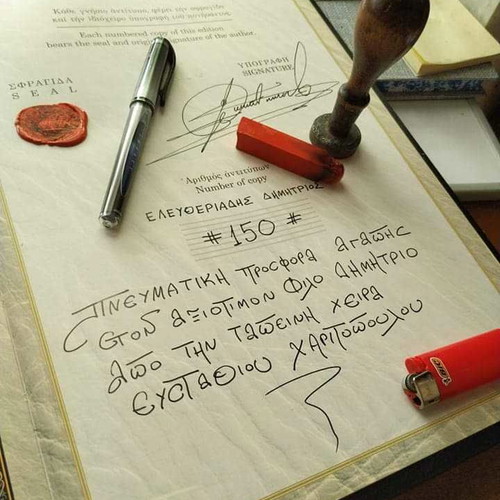 Κάθε γνήσιο ἀντίτυπο, φέρει τὴν σφραγίδα
καὶ τὴν ἰδιόχειρη ὑπογραφὴ τοῦ συγγραφέα.
Each numbered copy of this edition
bears the seal and original signature of the author.
ΣΦΡΑΓΙΔΑ
SEAL
ΥΠΟΓΡΑΦΗ
SIGNATURE
Ἀριθμὸς ἀντιτύπου
Number of copy
ΕΛΕΥΘΕΡΙΑΔΗΣ ΔΗΜΗΤΡΙΟΣ
# 150 #
ΠΝΕΥΜΑΤΙΚΗ ΠΡΟΣΦΟΡΑ ΑΓΑΠΗΣ
ΣΤΟΝ ΑΞΙΟΤΙΜΟΝ ΦΙΛΟ ΔΗΜΗΤΡΙΟ
ΑΠΟ ΤΗΝ ΤΑΠΕΙΝΗ ΧΕΙΡΑ
ΕΥΣΤΑΘΙΟΥ ΧΑΡΙΤΟΠΟΥΛΟΥ
BIC